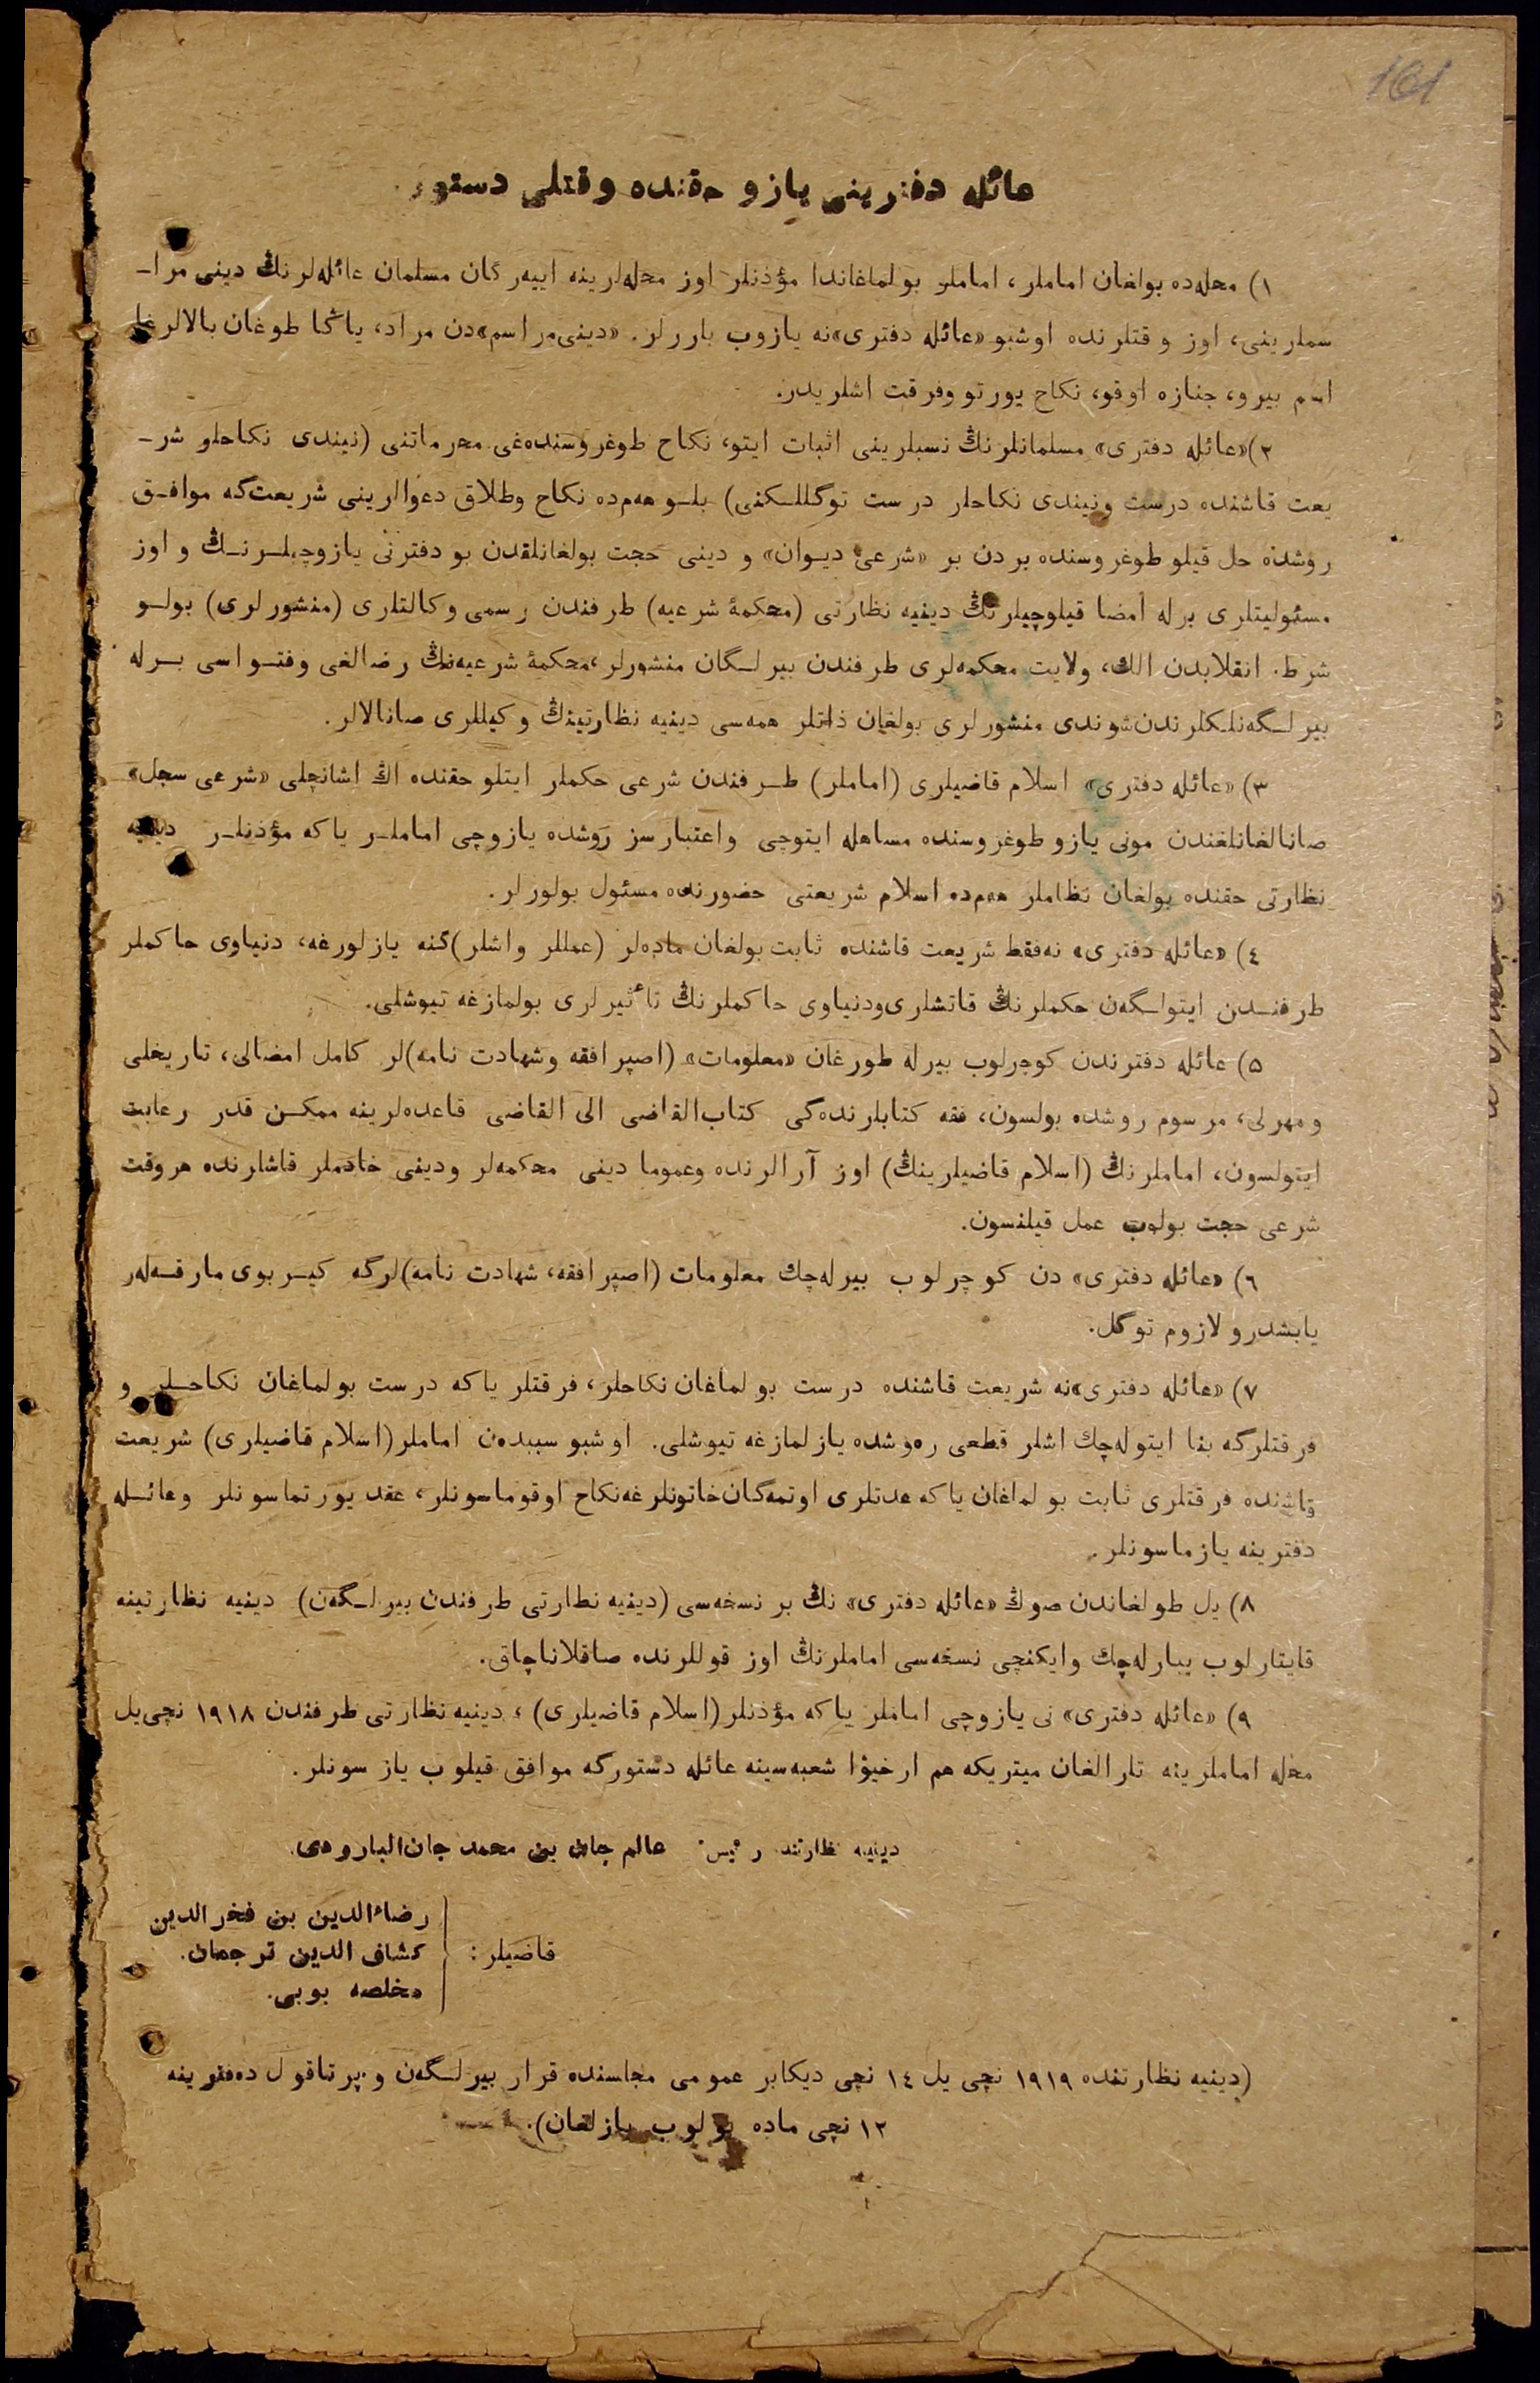 161
عائله دفترینی یازو حقنده وقتلی دستور.
١) محله‌ده بولغان اماملر، اماملر بولماغاندا مؤذنلر اوز محله‌لرینه اییه‌رگان مسلمان عائله‌لرنڭ دینی مرا-
سملرینی، اوز وقتلرنده اوشبو «عائله دفتری»نه یازوب باررلر. «دینی مراسم»دن مراد، یاڭا طوغان بالالرغا
اسم بیرو، جنازه اوقو، نکاح یورتو وفرقت اشلریدر.
٢)«عائله دفتری» مسلمانلرنڭ نسبلرینی اثبات ایتو، نکاح طوغروسنده‌غی محرماتنی (نیندی نکاحلو شر-
یعت قاشنده درست ونیندی نکاحلر درست توگللکنی) بلو هم‌ده نکاح وطلاق دعوالرینی شریعت‌گه موافق
روشده حل قیلو طوغروسنده بردن بر «شرعیٔ دیوان» و دینی حجت بولغانلقدن بو دفترنی یازوچیلرنڭ و اوز
مسئولیتلری برله امضا قیلوچیلرنڭ دینیه نظارتی (محکمهٔ شرعیه) طرفندن رسمی وکالتلری (منشورلری) بولو
شرط. انقلابدن الك، ولایت محکمه‌لری طرفندن بیرلگان منشورلر، محکمهٔ شرعیه‌نڭ رضالغی وفتواسی برله
بیرلگه‌نلکلرندن شوندی منشورلری بولغان ذاتلر همه‌سی دینیه نظارتینڭ وکیللری صانالالر.
٣) «عائله دفتری» اسلام قاضیلری (اماملر) طرفندن شرعی حکملر ایتلو حقنده اڭ اشانچلی «شرعی سجل»
صانالغانلغندن مونی یازو طوغروسنده مساهله ایتوچی واعتبارسز روشده یازوچی اماملر یاکه مؤذنلر دینیه
نظارتی حقنده بولغان نظاملر هم‌ده اسلام شریعتی حضورنده مسئول بولورلر.
٤) «عائله دفتری» نه‌فقط شریعت قاشنده ثابت بولغان ماده‌لر (عمللر واشلر)گنه یازلورغه، دنیاوی حاکملر
طرفندن ایتولگه‌ن حکملرنڭ قاتشلری‌ودنیاوی حاکملرنڭ تأثیرلری بولمازغه تیوشلی.
۵) عائله دفترندن کوچرلوب بیرله طورغان «معلومات» (اصپرافقه وشهادت نامه)لر کامل امضالی، تاریخلی
ومهرلی، مرسوم روشده بولسون، فقه کتابلرنده‌گی کتاب‌القاضی الی القاضی قاعده‌لرینه ممکن قدر رعایت
ایتولسون، اماملرنڭ (اسلام قاضیلرینڭ) اوز آرالرنده وعموما دینی محکمه‌لر ودینی خادملر قاشلرنده هروقت
شرعی حجت بولوب عمل قیلنسون.
٦) «عائله دفتری» دن کوچرلوب بیرله‌چك معلومات (اصپرافقه، شهادت نامه)لرگه کیربوی مارقه‌لر
یابشدرو لازوم توگل.
٧) «عائله دفتری»نه شریعت قاشنده درست بولماغان نکاحلر، فرقتلر یاکه درست بولماغان نکاحلر و
فرقتلرگه بنا ایتوله‌چك اشلر قطعی ره‌وشده یازلمازغه تیوشلی. اوشبو سببدن اماملر(اسلام قاضیلری) شریعت
قاشنده فرقتلری ثابت بولماغان یاکه عدتلری اوتمه‌گان‌خاتونلرغه‌نکاح اوقوماسونلر، عقد یورتماسونلر وعائله
دفترینه یازماسونلر.
٨) یل طولغاندن صوڭ «عائله دفتری» نڭ بر نسخه‌سی (دینیه نظارتی طرفندن بیرلگه‌ن) دینیه نظارتینه
قایتارلوب یبارله‌چك وایکنچی نسخه‌سی اماملرنڭ اوز قوللرنده صاقلاناچاق.
٩) «عائله دفتری» نی یازوچی اماملر یاکه مؤذنلر(اسلام قاضیلری)، دینیه نظارتی طرفندن ١٩١٨ نچی‌یل
محله اماملرینه تارالغان میتریکه هم ارخیوْا شعبه‌سینه عائله دستورگه موافق قیلوب یازسونلر.
دینیه نظارتنڭ رئیس عالم جان بن محمد جان‌البارودی.
قاضیلر:
رضاءالدین بن فخرالدین
کشاف الدین ترجمان.
مخلصه بوبی.
(دینیه نظارتنده ١٩١٩ نچی یل ١٤ نچی دیکابر عمومی مجلسنده قرار بیرلگه‌ن و پرتاقول ده‌فترینه
١٢ نچی ماده بولوب یازلغان).